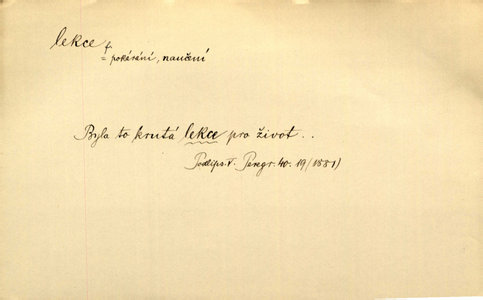 lekce f
= pokárání, naučení
Byla to krutá lekce pro život..
Podlips. F. Peregr. 40. 19 (1881)